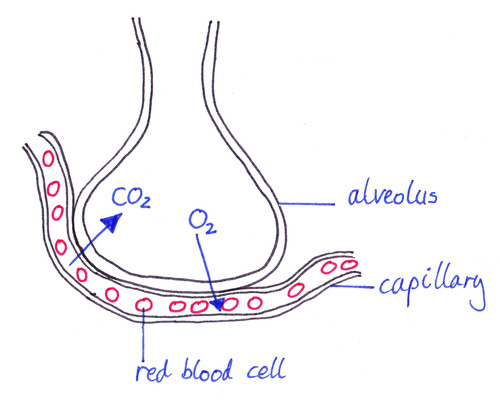 CO2
O2
alveolus
capillary
red blood cell